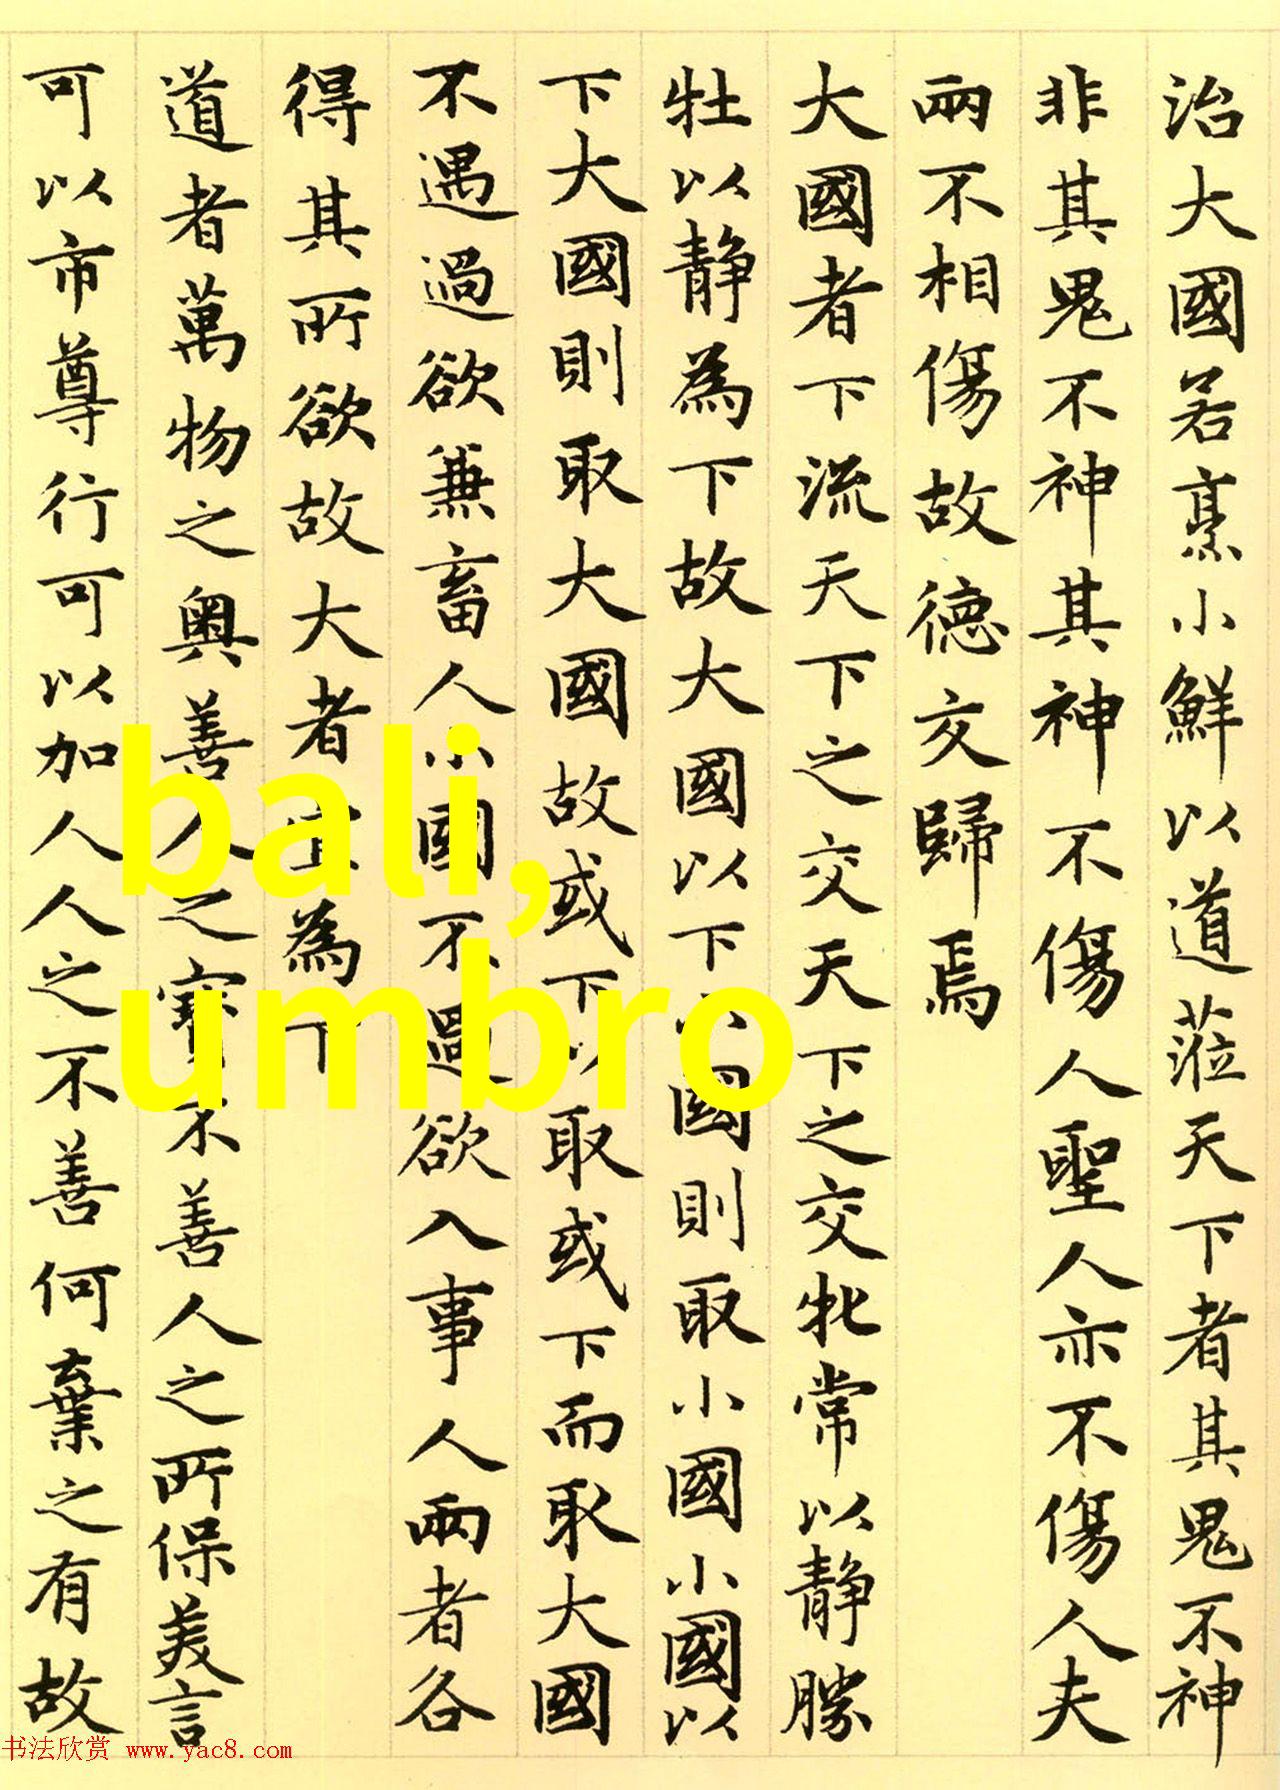 治大國若烹小鮮以道蒞天下者其鬼不神
非其鬼不神其神不傷人聖人亦不傷人夫
兩不相傷故德交歸焉
大國者下流天下之交天下之交牝常以静勝
牡以静為下故大國以下小國則取小國小國以
下大國則取大國故或下以取或下而取大國
不遇過欲兼畜人小國不過欲入事人兩者各
得其所欲故大者宜為下
道者萬物之奧善人之寶不善人之所保美言
可以市尊行可以加人人之不善何棄之有故
bali,
umbro
书法欣赏 www.yac8.com